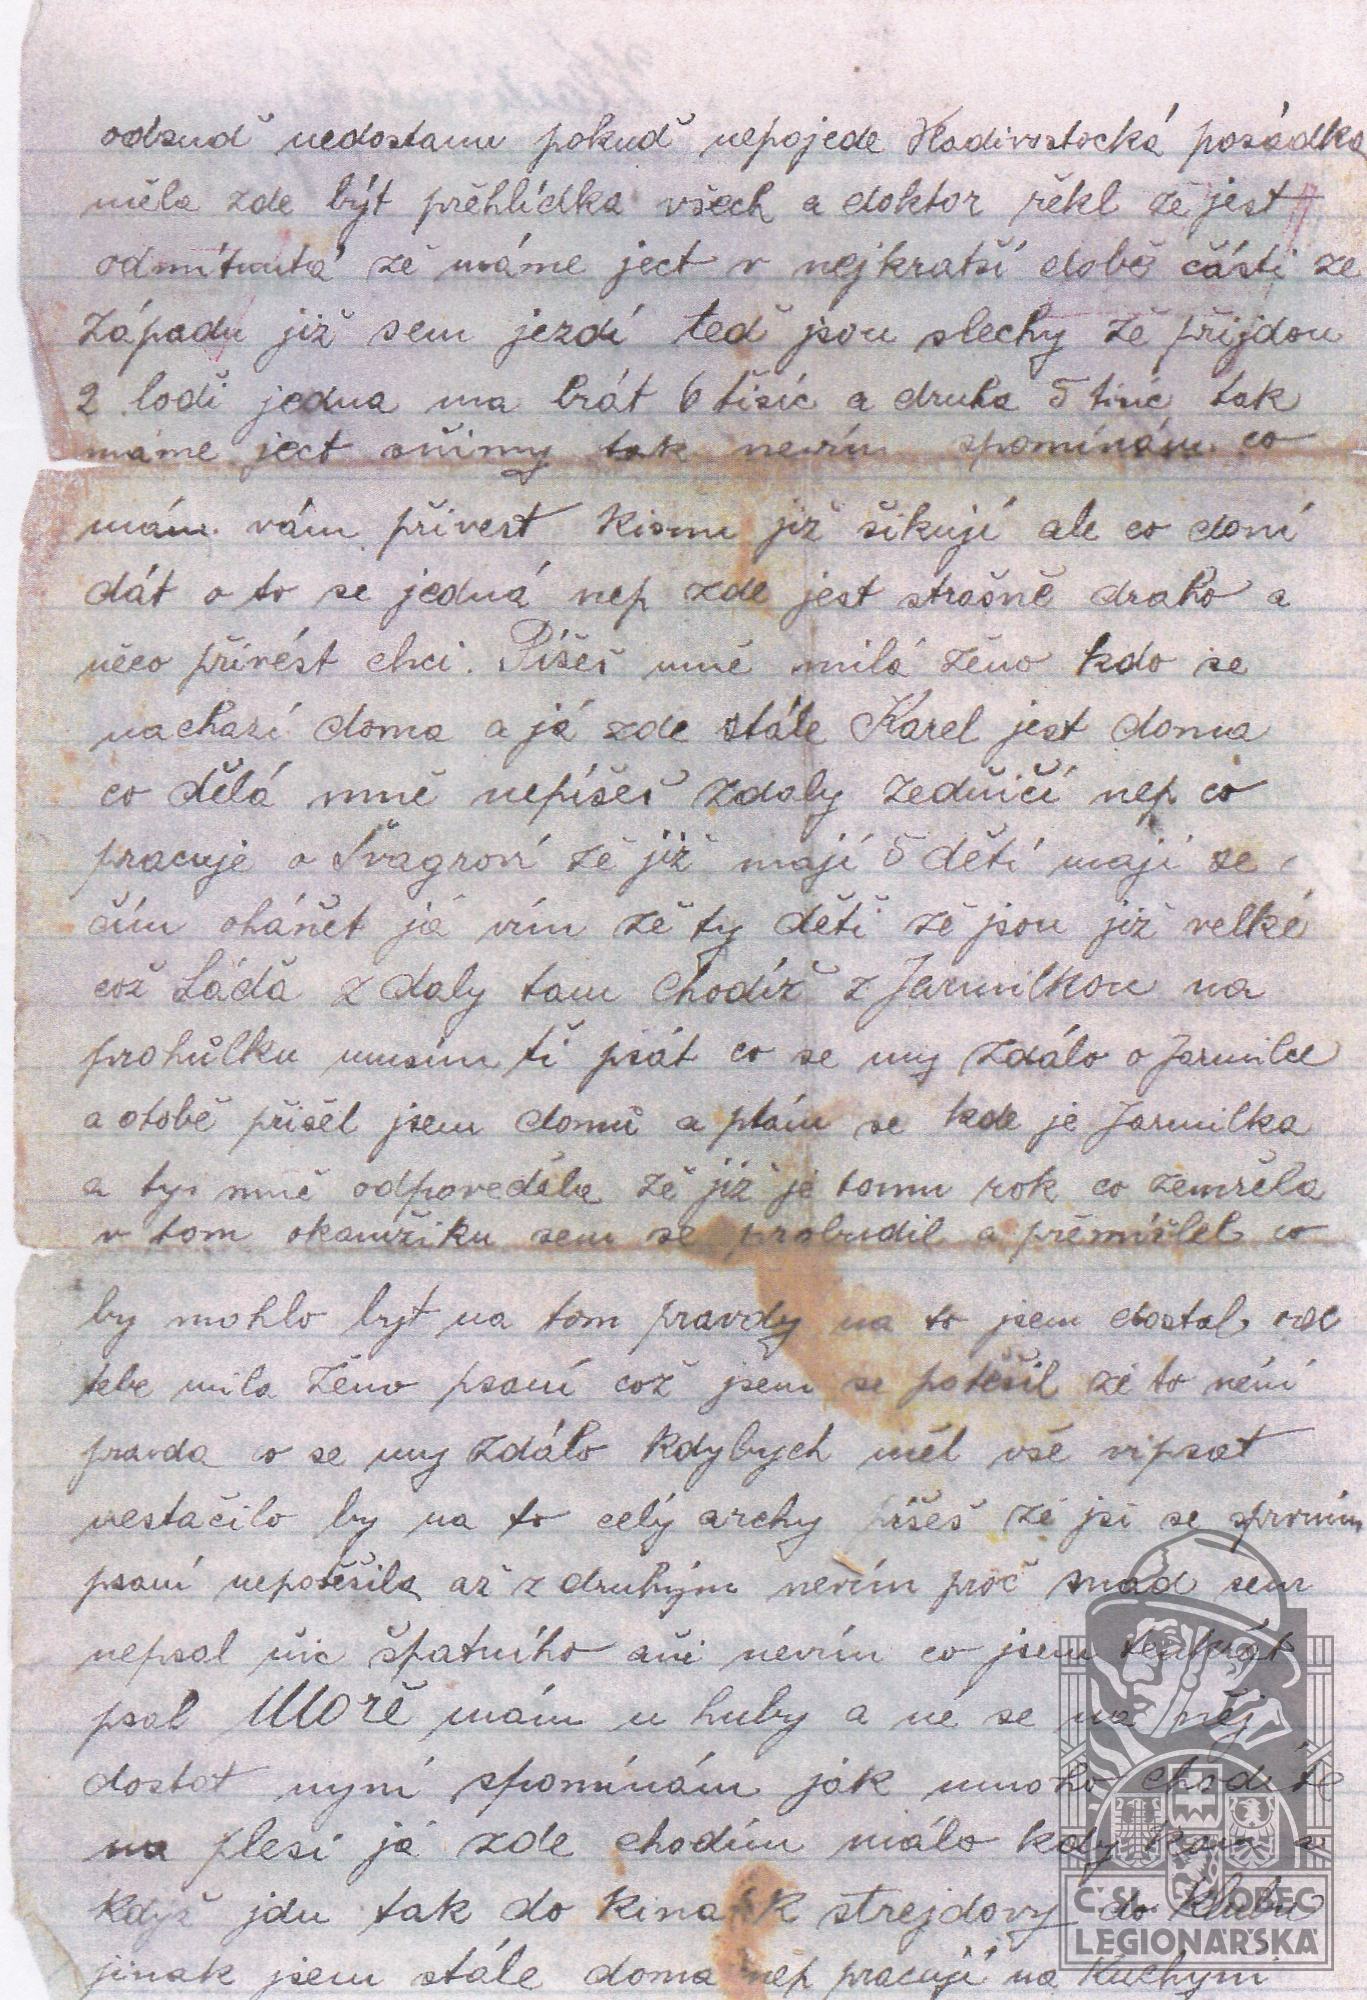 odsuď nedostanu pokuď nepojede Vladivostocká posádka
měla zde být přěhlídka všech a doktor řěkl že jest
odmítnutá zě máme ject v nejkratší době části ze
Západu již sem jezdí teď jsou slechy žě přijdou
2 lodi jedna ma brát 6 tisíc a druha 5 tisíc tak
máme ject snimy tak nevím spomínám co
mám vám přivest Kismu již šikuji ale co doní
dát o to se jedná nep zde jest strašně draho a
něco přivést chci. Píšeš mně milá ženo kdo se
nachazí doma a já zde stále Karel jest doma
co dělá mně nepíšeš zdaly zedničí nep co
pracuje o Švagroví žě již mají 5 dětí mají se
čím oháňet já vím žě ty děti žě jsou již velké
což Láďa zdaly tam chodíž z Jarmilkou na
prohůlku musím ti psát co se my zdálo o Jarmilce
a otobě přišel jsem domů a ptám se kde je Jarmilka
a tys mně odpověděla žě již je tomu rok co zemřěla
v tom okamžiku sem se probudil a přěmíšlel co
by mohlo byt na tom pravdy na to jsem dostal od
tebe mila ženo psaní což jsem se potěšil žě to není
pravda co se my zdálo Kdybych měl vše vipsat
nestačilo by na to celý archy píšeš žě jsi se sprvním
psaní nepotěšila až z druhým nevím proč snad sem
nepsal nic špatního ani nevím co jsem tenkrát
psal Mořě mám u huby a né se na něj
dostat nyní spomínám jak mnoho chodíte
na plesi já zde chodím málo kdy kam a
Když jdu tak do kina k strejdovy do klubu
jinak jsem stále doma nep pracuji na Kuchyni
ČSL. OBEC
LEGIONÁŘSKÁ